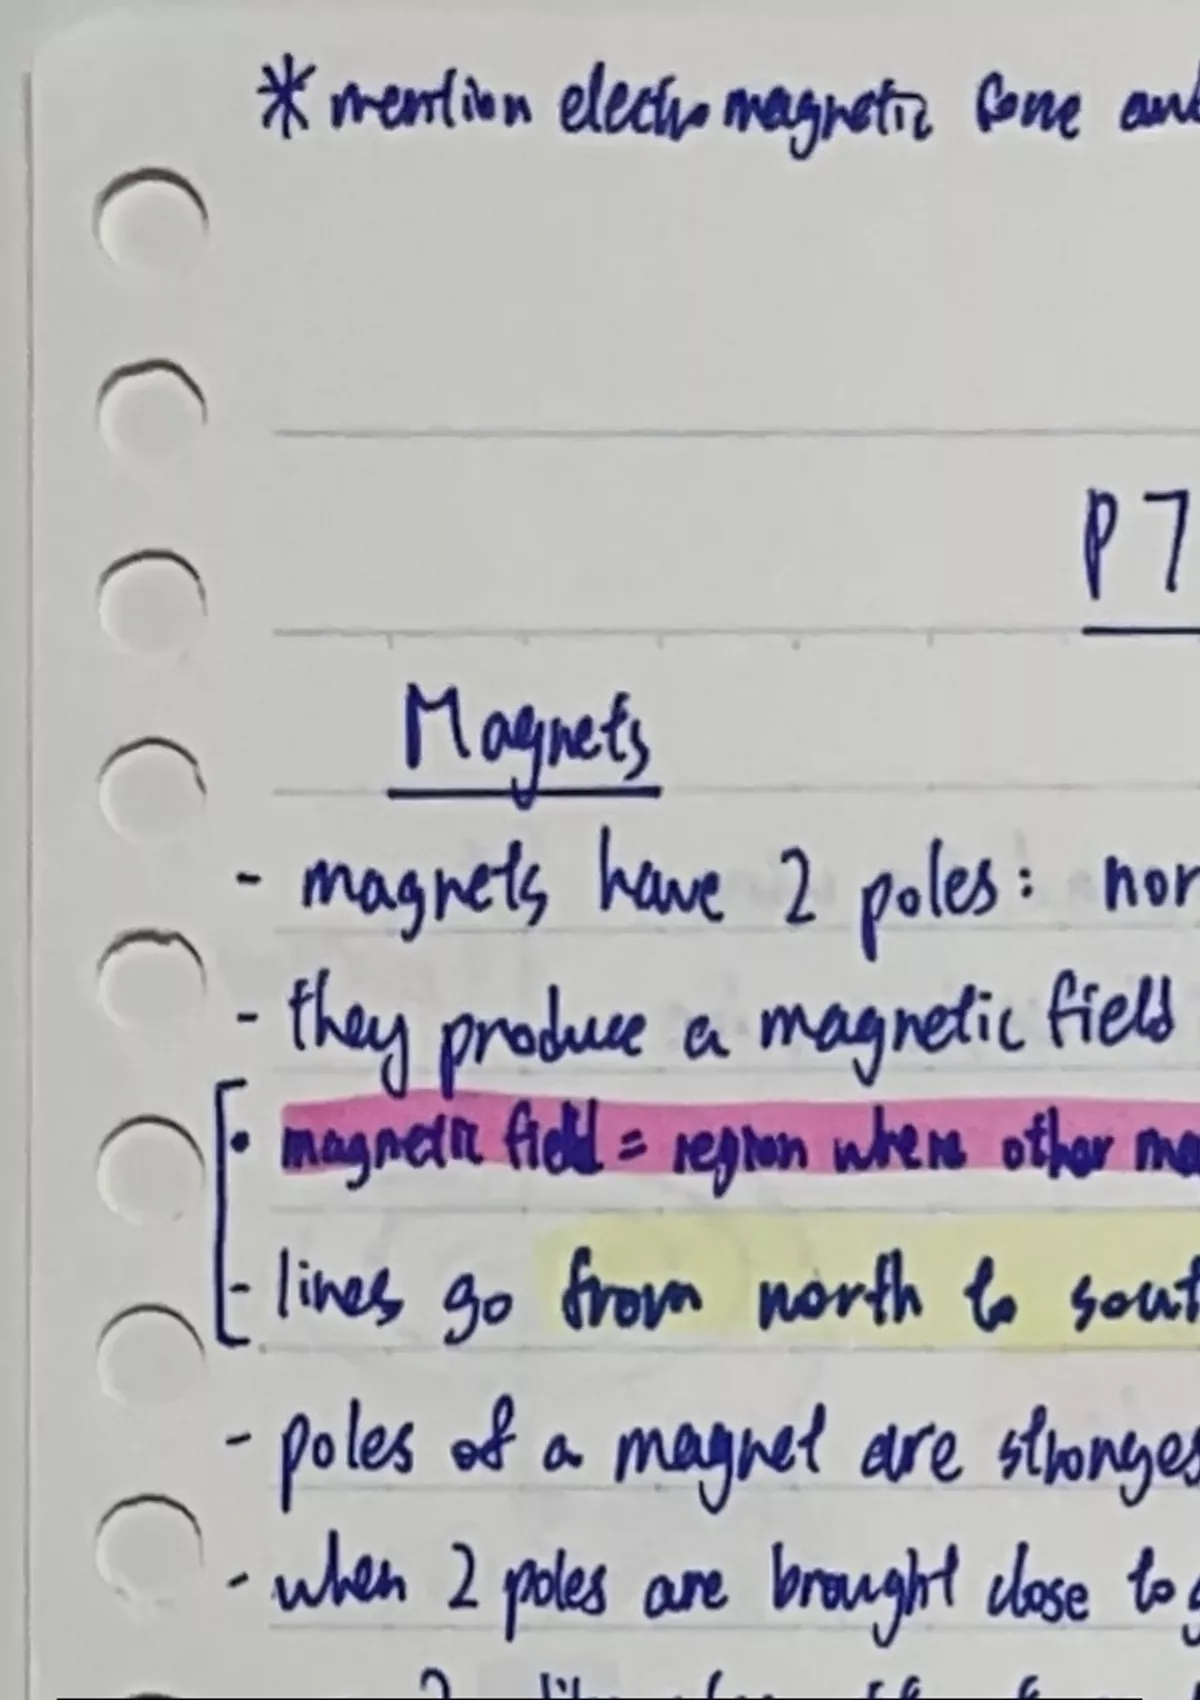 * mention electromagnetic force and
P7
Magnets
- magnets have 2 poles: nor
- they produce a magnetic field
• magnetic field = region where other ma
- lines go from north to sout
- poles of a magnet are stronges
- when 2 poles are brought close tog